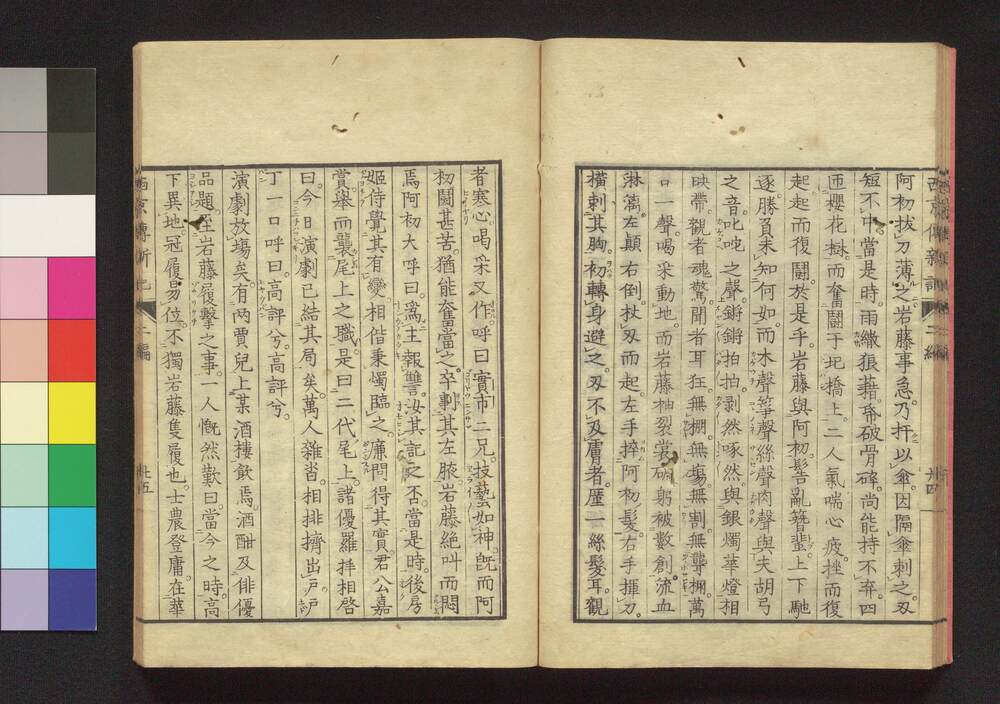 阿初拔刀薄之岩藤事急。乃扞以傘。因隔傘刺之。刄
短不中當是時。雨繖狼藉。帋破骨碎。尚能持不弃。四
匝櫻花樹。而奮鬪于圯橋上。二人氣喘心疲。挫而復
起起而復鬪。於是乎。岩藤與阿初。髻亂簪墜。上下馳
逐。勝負未知何如。而木聲箏聲絲聲肉聲與夫胡弓
之音。叱咜之聲。鏘鏘拍拍剥然啄然。與銀燭華燈相
映帶。觀者魂驚。聞者耳狂。無棚。無塲。無割。無聾棚。萬
口一聲。喝采動地。而岩藤袖裂裳破。躬被數創。流血
淋漓。左顛右倒。杖刄而起。左手捽阿初髮。右手揮刀。
橫刺其胸。初轉身避之。刄不及膚者。厪一絲髮耳。觀
者寒心。喝采又作。呼曰實市二兄。技藝如神。既而阿
初鬪甚苦。猶能奮當之。卒剚其左腋。岩藤絶叫而悶
焉阿初大呼曰。爲主報讐。汝其記之否。當是時。後房
姬侍覺其有變。相偕秉燭臨之。廉問得其實。君公嘉
賞。擧而襲尾上之職。是曰二代尾上。諸優羅拜相啓
曰。今日演劇已結其局矣。萬人雜沓。相排擠出戸戸
丁一口呼曰。高評兮。高評兮。
演劇放塲矣。有兩賈兒上某酒樓飮焉。酒酣及俳優
品題。至岩藤履擊之事。一人慨然歎曰。當今之時。高
下異地。冠履易位。不獨岩藤隻履也。士農登庸。在華
二編